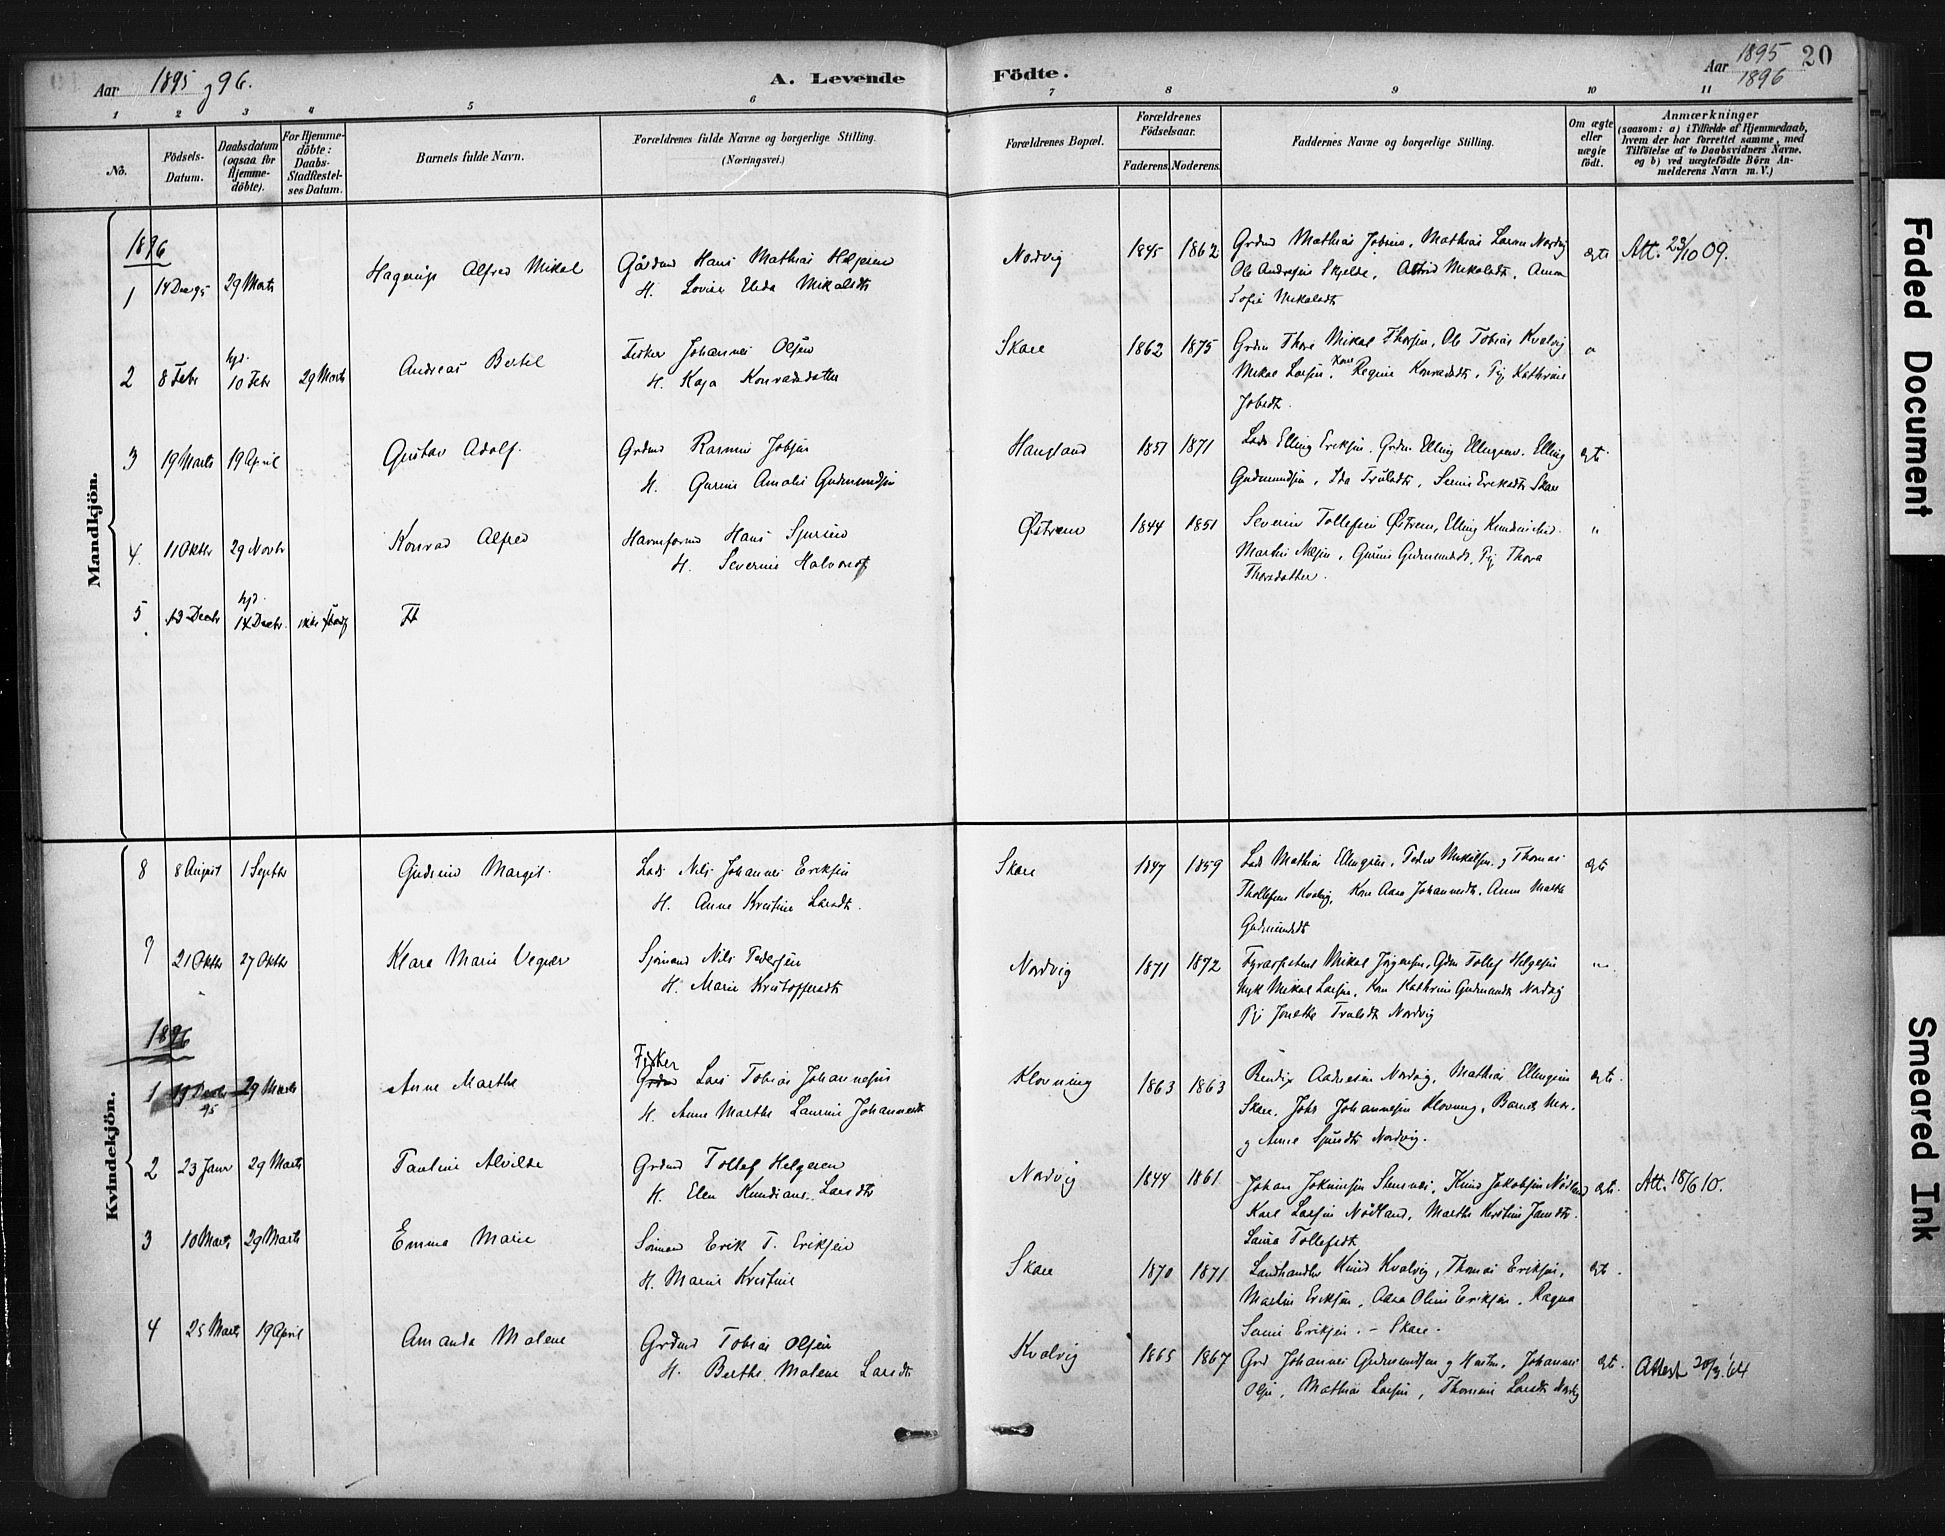 Aar 1895 og 96.
A. Levende Födte.
Aar 1895 1896
20
1 2 3 4 5 6 7 8 9 10 11
No.
Födsels-Datum.
Daabsdatum (ogsaa for Hjemmedöbte).
For Hjemmedöbte: Daabs-Stadfæstelses Datum.
Barnets fulde Navn.
Forældrenes fulde Navne og borgerlige Stilling. (Næringsvei.)
Forældrenes Bopæl.
Forældrenes Födselsaar.
Faderens. Moderens.
Faddernes Navne og borgerlige Stilling.
Om ægte eller uægte födt.
Anmærkninger
(saasom: a) i Tilfælde af Hjemmedaab, hvem der har forrettet samme, med Tilföielse af to Daabsvidners Navne. og b) ved uægtefödte Börn Anmelderens Navn m. V.)
Mandkjön.
1896
1 14 Dec 95 29 Marts Hagerup Alfred Mikal Gårdmd Hans Mathias Helgesen Nordvig 1845 1862 Grdmd Mathias Jobsen, Mathias Larsen Nordvig ægte Att. 23/10 09.
H. Lovise Elida Mikalsdtr Ole Andreasen Skjelde, Astrid Mikalsdtr, Anna
Sofie Mikalsdtr
2 8 Febr hjd. 10 Febr 29 Marts Andreas Bertel Fisker Johannes Olsen Skare 1862 1875 Grdm Thore Mikal Thorsen, Ole Tobias Kvalvig
H. Kaja Konradsdatter Mikal Larsen, Kone Regine Konradsdtr, Pig Kathrine
Jobsdtr.
3 19 Marts 19 April Gustav Adolf. Grdmd Rasmus Jobsen Haugland 1851 1871 Lods Elling Eriksen, Grdm Elling Ellingsen, Elling ægte
H. Gurine Amalie Gudmundsen Gudmundsen, Ida Trulsdtr, Serine Eriksdtr Skare
4. 11 Oktbr 29 Novbr Konrad Alfred Havneformd Hans Sjursen Østrem 1844 1851 Severin Tollefsen Østrem, Elling
H. Severine Halvorsdtr Martin Nilsen, Gurine Gudmundsdt, Pig Thora
Thorsdatter.
5. 13 Decbr hjd. 14 Decbr. ikke stadf
Kvindekjön.
8 8 August 1 Septbr Gudrun Margit. Lods Nils Johannes Eriksen Skare 1847 1859 Lods Mathias Ellingsen, Peder Mikalsen, og Thomas ægte
H. Anne Kristine Larsdtr. Thollefsen Kvalvig, Kone Aasa Johannesdtr, Anne Marthe
Gudmundsdt
9 21 Oktbr 27 Oktbr Klara Marie Vegner Sjømand Nils Pedersen Nordvig 1871 1872 Fyrassistent Mikal Jørgensen, Grdm Tollef Helgesen
H. Marie Kristoffersdtr Ungk Mikal Larsen, Kone Kathrine Gudmundsdt Nordvig
Pig Jonette Trulsdtr Nordvig
1896
1 19 Decbr 95 29 Marts Anne Marthe Fisker Lars Tobias Johannesen Klovning 1863 1863 Bendix Andreasen Nordvig, Mathias Ellingsen ægte.
H. Anne Marthe Laurine Johannesdt Skare, Johs Johannesen Klovning, Barnets Mor.
og Anne Sjursdtr Nordvig.
2 23 Janr 29 Marts Pauline Alvilde Grdmd Tollef Helgesen Nordvig 1844 1861 Johan Jokumsen Stensnes, Knud Jakobsen Nødland ægte. Att. 18/6 10.
H. Elen Knudiane Larsdtr Karl Larsen Nødland, Marthe Kristine Jansdtr.
Laura Tollefsdt
3 10 Marts 29 Marts Emma Marie Sømand Erik T. Eriksen Skare 1870 1871 Landhandler Knud Kvalvig, Thomas Eriksen, ægte.
H. Marie Kristine Martin Eriksen, Aasa Oline Eriksen, Ragna
Eriksen. - Skare.
4 25 Marts 19 April Amanda Malene Grdmd Tobias Olsen Kvalvig 1865 1867 Grd Johannes Gudmundsen og Hustru, Johannes ægte. Attest 20/3.'64
H. Berthe Malene Larsdt Olsen, Mathias Larsen, Thomine Larsdtr Nordvig
Faded Document
Smeared Ink